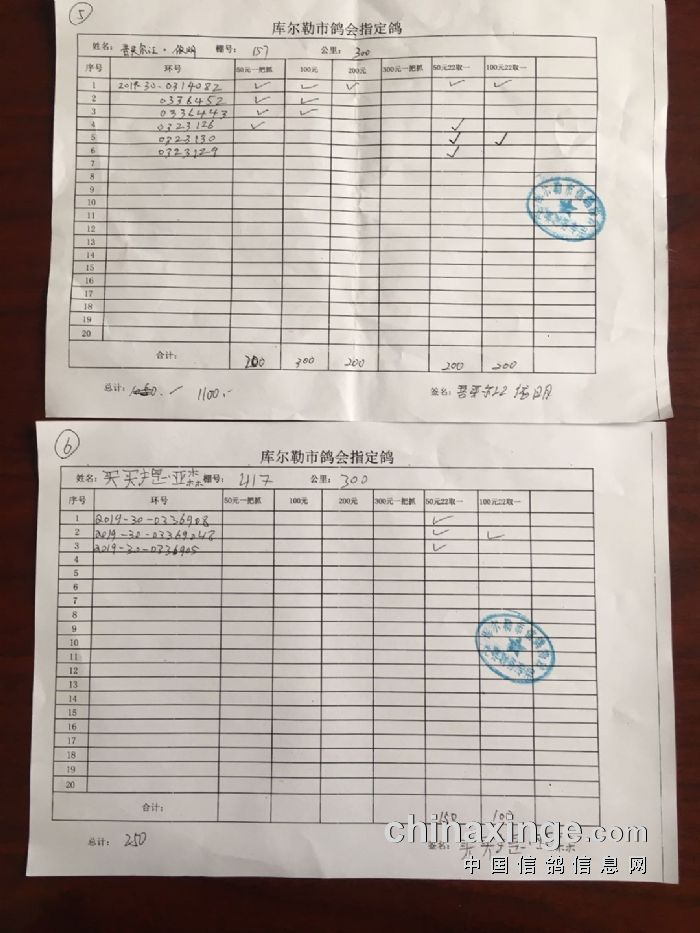 5
库尔勒市鸽会指定鸽
姓名： 棚号： 157 公里： 300
序号 环号 50元一把抓 100元 200元 300元一把抓 50元22取一 100元22取一
1 2019-30-0314082 ✓ ✓ ✓ ✓ ✓
2 0336452 ✓ ✓
3 0336443 ✓ ✓
4 0323126 ✓ ✓
5 0323130 ✓ ✓
6 0323129 ✓
7
8
9
10
11
12
13
14
15
16
17
18
19
20
合计： 200 300 200 200 200
总计： 1100.- 签名：
6
库尔勒市鸽会指定鸽
姓名： 棚号： 417 公里： 300
序号 环号 50元一把抓 100元 200元 300元一把抓 50元22取一 100元22取一
1 2019-30-0336908 ✓
2 2019-30-03369048 ✓ ✓
3 2019-30-0336905 ✓
4
5
6
7
8
9
10
11
12
13
14
15
16
17
18
19
20
合计： 150 100
总计： 250 签名：
chinaxinge.com
中国信鸽信息网